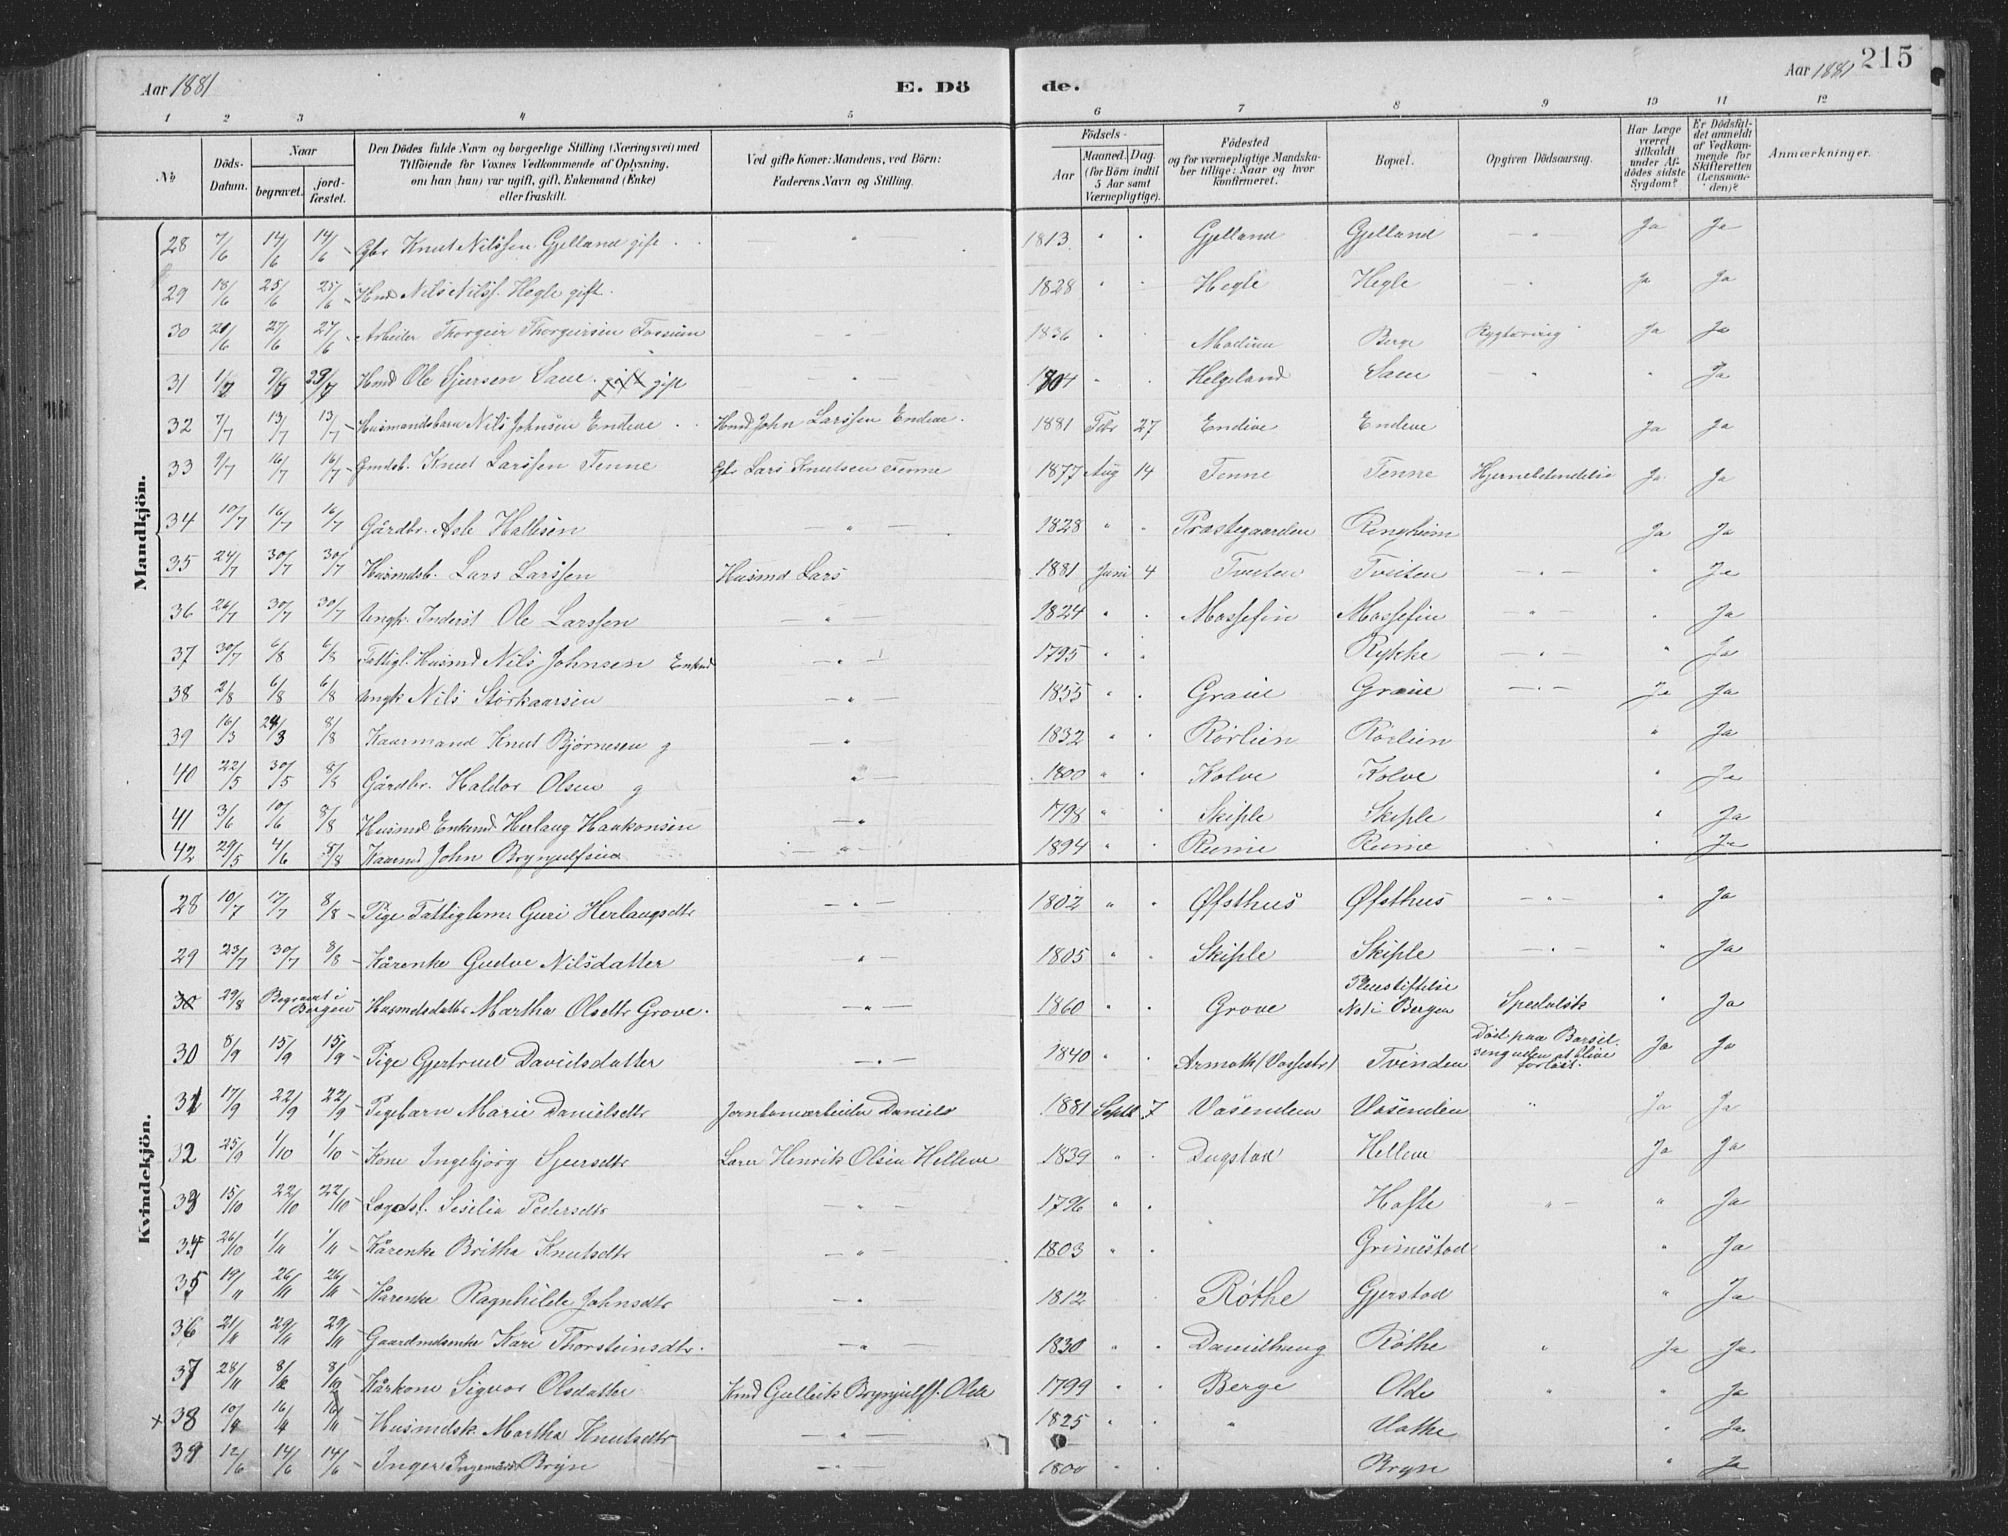 Aar 1881
E. Dö
de.
Aar 1881
215
1 2 3 4 5 6 7 8 9 10 11 12
No
Döds-Datum.
Naar
begravet.
jord-fæstet.
Den Dödes fulde Navn og borgerlige Stilling (Næringsvei) med
Tilföiende for Voxnes Vedkommende af Oplysning,
om han (hun) var ugift, gift, Enkemand (Enke)
eller fraskilt.
Ved gifte Koner: Mandens, ved Börn:
Faderens Navn og Stilling.
Födsels-
Aar
Maaned. Dag.
(for Börn indtil
5 Aar samt
Værnepligtige).
Födested
og for værnepligtige Mandska-
ber tillige: Naar og hvor
konfirmeret.
Bopæl.
Opgiven Dödsaarsag.
Har Læge
været
tilkaldt
under Af-
dödes sidste
Sygdom?
Er Dödsfal-
det anmeldt
af Vedkom-
mende for
Skifteretten
(Lensman-
den)?
Anmærkninger.
Mandkjön.
28 7/6 14/6 14/6 Gbr Knut Nilssen Gjelland gift 1813 Gjelland Gjelland Ja Ja
29 18/6 25/6 25/6 Hmd Nils Nilsf. Hegle gift. 1828 Hegle Hegle Ja Ja
30 21/6 27/6 27/6 Arbeider Thorgeir Thorgeirsen Fossum 1836 Modum Berge Ja Ja
31 1/7 9/7 29/7 Hmd Ole Sjursen Saue gift gift 1804 Helgeland Saue Ja
32 7/7 13/7 13/7 Husmandsbarn Nils Johnsen Endeve Hmd John Larssen Endeve 1881 Febr 27 Endeve Endeve Ja Ja
33 9/7 16/7 16/7 Gmdsb. Knut Larssen Tenne Gbr Lars Knutsen Tenne 1877 Aug 14 Tenne Tenne Hjernebetendelse Ja Ja
34 10/7 16/7 16/7 Gårdbr. Asle Hallsen 1828 Præstegaarden Ringheim Ja Ja
35 24/7 30/7 30/7 Husmdsb. Lars Larssen Husmd Lars 1881 Juni 4 Tveiten Tveiten Ja
36 26/7 30/7 30/7 Ungk. Inderst Ole Larssen 1824 Mossefin Mossefin Ja
37 30/7 6/8 6/8 Fattigl. Husmd Nils Johnsen Enkmd 1795 Rykke Ja
38 2/8 6/8 6/8 Ungk Nils Storkaarsen 1855 Graue Graue Ja Ja
39 16/3 24/3 8/8 Kaarmand Knut Bjørnesen g 1832 Rørlien Rørlien Ja
40 22/5 30/5 8/8 Gårdbr. Haldor Olsen g 1800 Kolve Kolve Ja
41 3/6 10/6 8/8 Husmd Enkemd Herlaug Haakonsen 1798 Skiple Skiple Ja
42 29/5 4/6 5/8 Kaarmd John Brynjulfsen 1894 Reime Reime Ja
Kvindekjön.
28 10/7 17/7 8/8 Pige Fattiglem Guri Herlaugsdtr 1802 Øfsthus Øfsthus Ja
29 23/7 30/7 8/8 Kårenke Gudve Nilsdatter 1805 Skiple Skiple Ja
30 29/8 Begravet i Bergen Husmdsdatter Martha Olsdtr Grove. 1860 Grove Pleiestiftelse No 1 i Bergen Spedalsk Ja
30 8/9 15/9 15/9 Pige Gjertrud Davidsdatter 1840 Armoth (Vossestr) Tvinden Død paa Barsel-
seng uden at blive
forløst. Ja Ja
31 17/9 22/9 22/9 Pigebarn Marie Danielsdtr Jernbanearbeider Daniels 1881 Septb 7 Vasenden Vasenden Ja Ja
32 25/9 1/10 1/10 Kone Ingebjørg Sjursdtr Lærer Henrik Olsen Helleve 1839 Dugstad Helleve Ja Ja
33 15/10 22/10 22/10 Lægdsl. Sesilia Pedersdtr 1796 Hafte Ja
34 26/10 1/11 1/11 Kårenke Britha Knutsdtr 1803 Grimestad Ja
35 19/11 26/11 26/11 Kårenke Ragnhilde Johnsdtr 1812 Røthe Gjerstad Ja
36 21/11 29/11 29/11 Gaardmdsenke Kari Thorsteinsdtr. 1830 Davidhaug Røthe Ja Ja
37 28/11 8/12 8/12 Kårkone Sigvor Olsdatter Kmd Gulleik Brynjulfs. Olde 1799 Berge Olde Ja
x 38 10/4 16/4 16/11 Husmdsk. Martha Knutsdtr 1825 Vathe Ja
39 12/6 14/6 14/6 Inger Bryn 1800 Bryn Ja